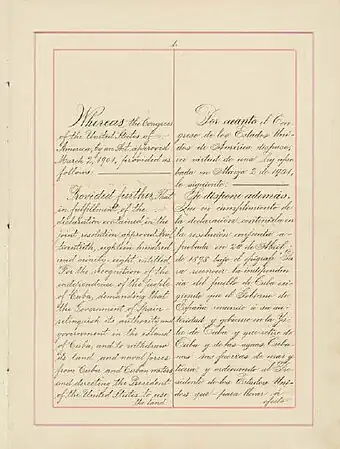 1.
Whereas the Congress
of the United States of
America, by an Act approved
March 2, 1901, provided as
follows:
Provided further, That
in fulfillment of the
declaration contained in the
joint resolution approved April
twentieth, eighteen hundred
and ninety-eight, entitled
"For the recognition of the
independence of the people
of Cuba, demanding that
the Government of Spain
relinquish its authority and
government in the island
of Cuba, and to withdraw
its land and naval forces
from Cuba and Cuban waters
and directing the President
of the United States to use
the land
Por cuanto el Con-
greso de los Estados Uni-
dos de América dispuso,
en virtud de una ley apro-
bada en Marzo 2 de 1901,
lo siguiente:
Se dispone además,
Que en cumplimiento de
la declaración contenida en
la resolución conjunta a-
probada en 20 de Abril
de 1898 bajo el epígrafe "Pa-
ra reconocer la independen-
cia del pueblo de Cuba exi-
giendo que el Gobierno de
España renuncie á su au-
toridad y gobierno en la Is-
la de Cuba y que retire de
Cuba y de las aguas Cuba-
nas sus fuerzas de mar y
tierra, y ordenando al Pre-
sidente de los Estados Uni-
dos que para llevar á
efecto